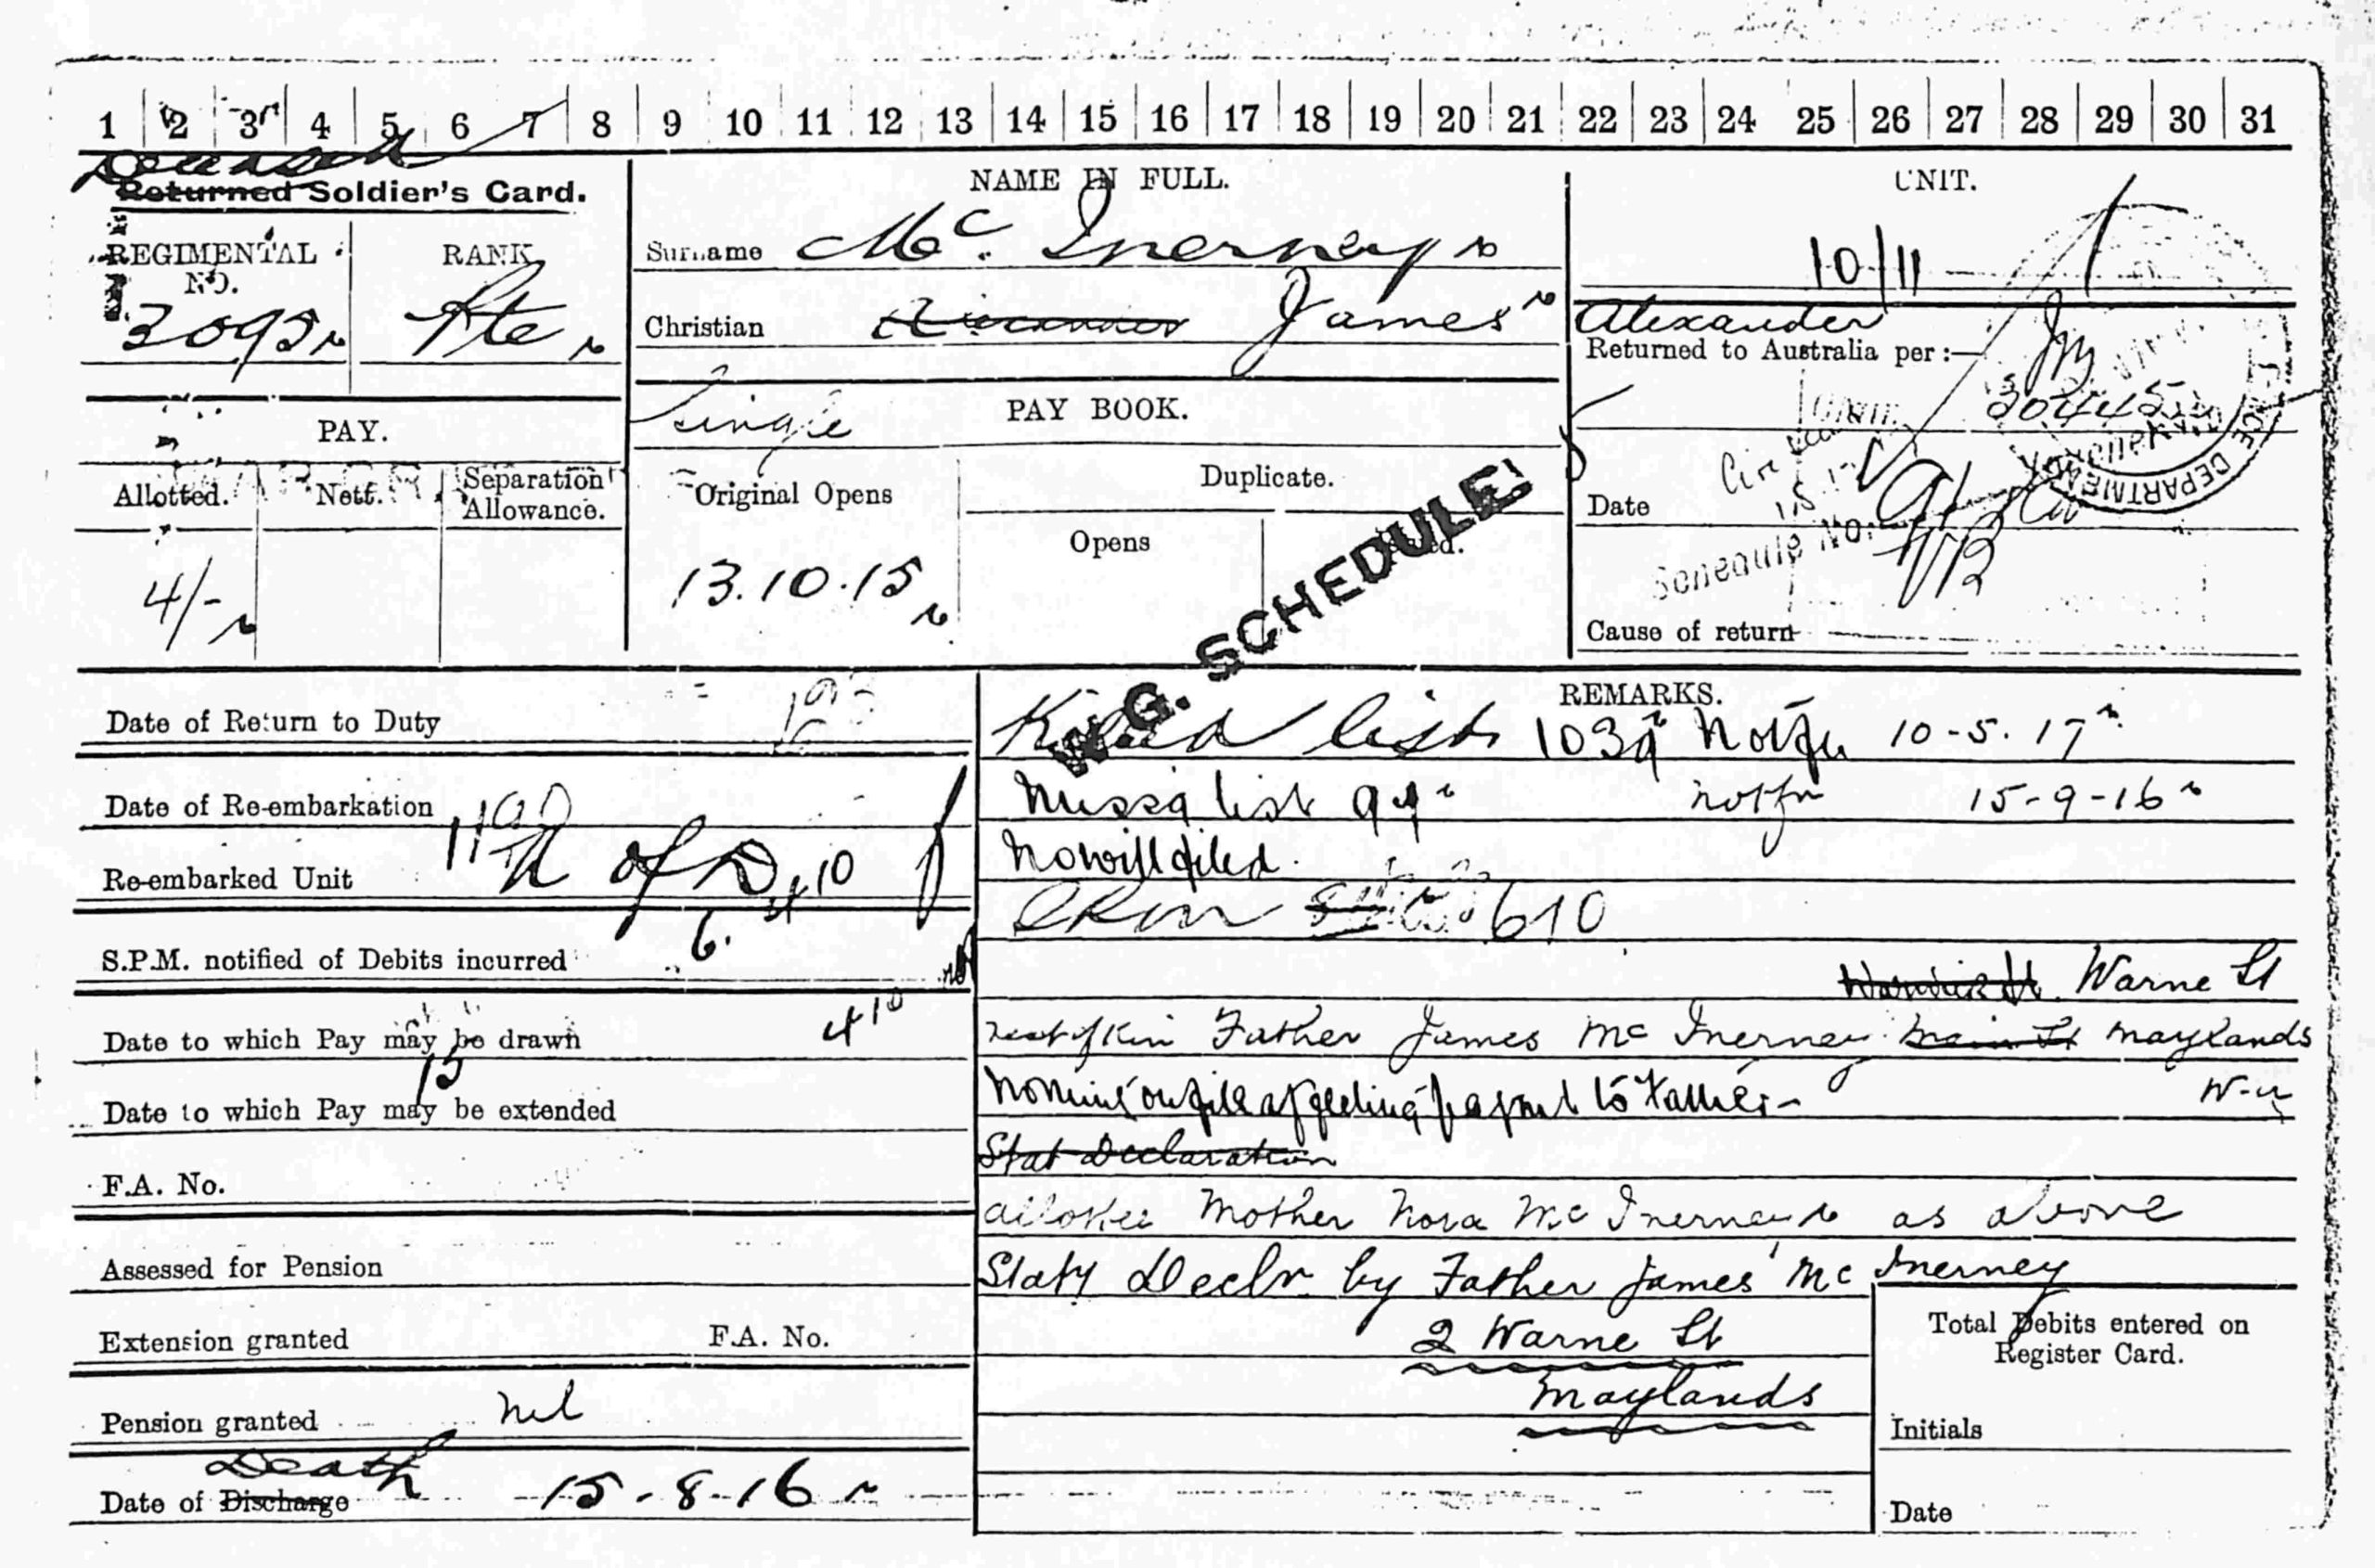 1 2 3 4 5 6 7 8 9 10 11 12 13 14 15 16 17 18 19 20 21 22 23 24 25 26 27 28 29 30 31
Deceased
Returned Soldier's Card.
REGIMENTAL NO.
3095
RANK
Pte
NAME IN FULL.
Surname Mc. Inerney
Christian Alexander James
UNIT.
10/11
Alexander
Returned to Australia per:—
Date
Schedule No.
Cause of return
PAY.
Allotted. Nett. Separation Allowance.
4/-
Single
PAY BOOK.
Original Opens
13.10.15
Duplicate.
Opens
W.G. SCHEDULE
Date of Return to Duty
Date of Re-embarkation
Re-embarked Unit
of D
S.P.M. notified of Debits incurred
Date to which Pay may be drawn
Date to which Pay may be extended
F.A. No.
Assessed for Pension
Extension granted F.A. No.
Pension granted nil
Death
Date of Discharge 15.8.16
REMARKS.
Killed list 103a Notfn 10-5.17
Missg list notfn 15-9-16
No will filed.
610
Warwick St. Warne St
next of kin Father James Mc Inerney Main St Maylands
Stat Declaration
allottee Mother Nora Mc Inerney as above
Staty Declr by Father James Mc Inerney
2 Warne St
Maylands
Total Debits entered on
Register Card.
Initials
Date